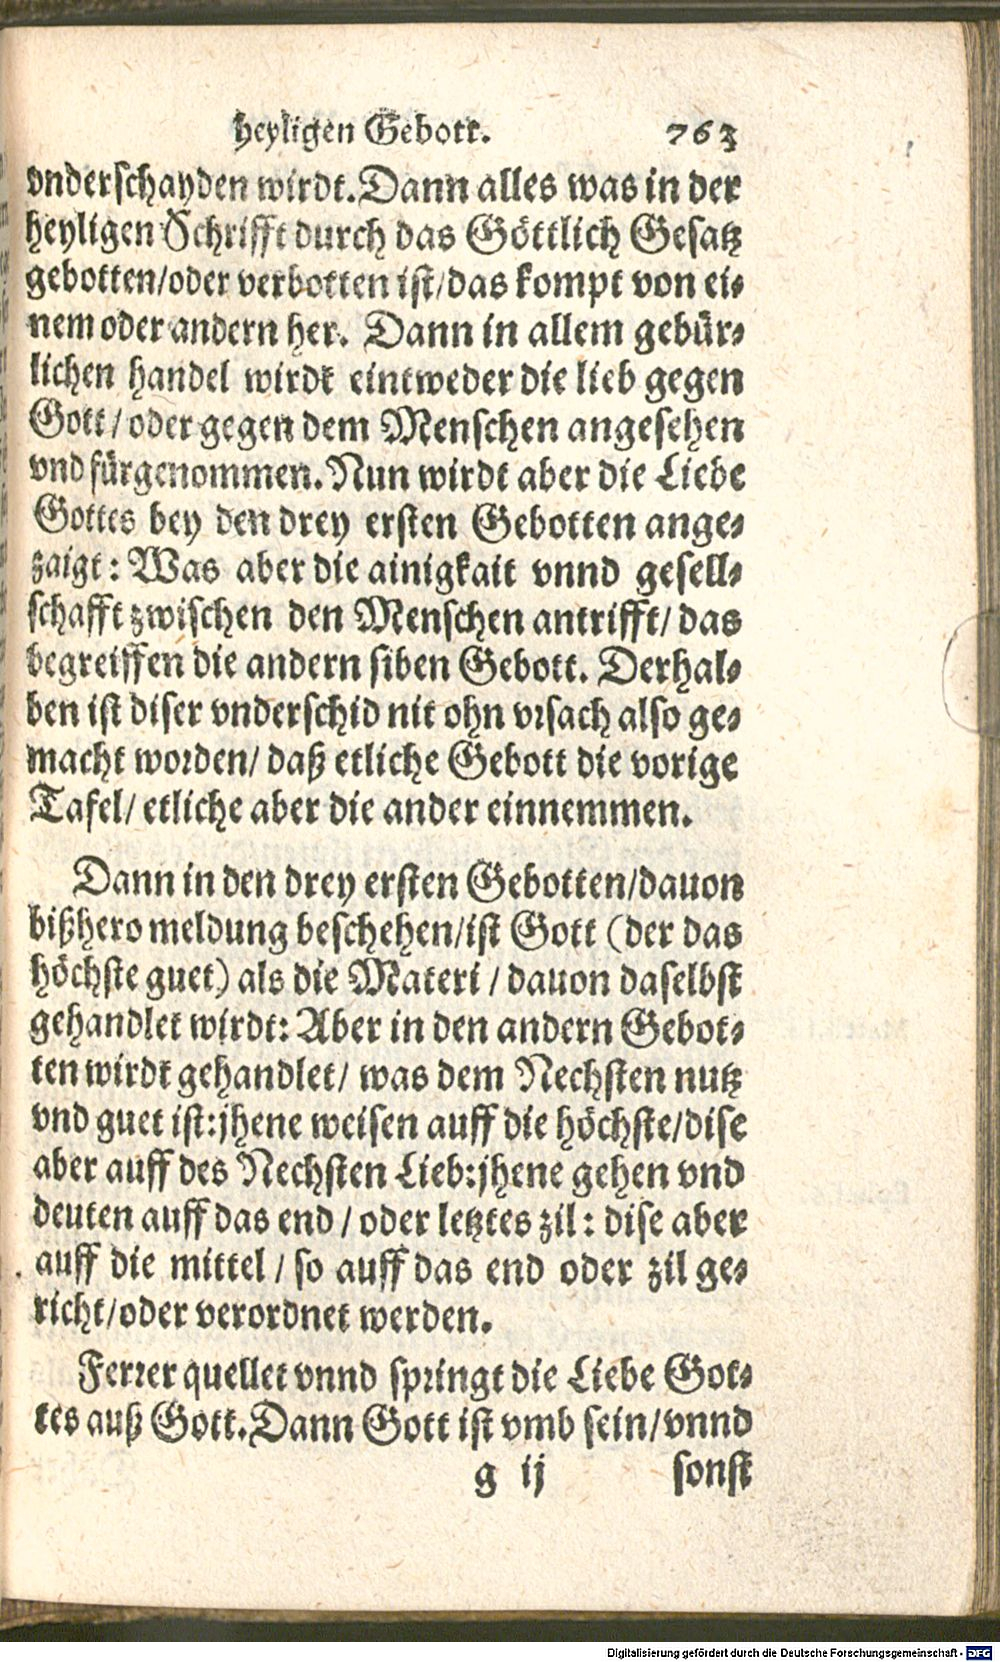 heyligen Gebott. 763
vnderschayden wirdt. Dann alles was in der
heyligen Schrifft durch das Göttlich Gesatz
gebotten/oder verbotten ist/das kompt von ei⸗
nem oder andern her. Dann in allem gebür⸗
lichen handel wirdt eintweder die lieb gegen
Gott/oder gegen dem Menschen angesehen
vnd fürgenommen. Nun wirdt aber die Liebe
Gottes bey den drey ersten Gebotten ange⸗
zaigt: Was aber die ainigkait vnnd gesell⸗
schafft zwischen den Menschen antrifft/das
begreiffen die andern siben Gebott. Derhal⸗
ben ist diser vnderschid nit ohn vrsach also ge⸗
macht worden/daß etliche Gebott die vorige
Tafel/etliche aber die ander einnemmen.
Dann in den drey ersten Gebotten/dauon
bißhero meldung beschehen/ist Gott (der das
höchste guet) als die Materi/dauon daselbst
gehandlet wirdt: Aber in den andern Gebot⸗
ten wirdt gehandlet/was dem Nechsten nutz
vnd guet ist: jhene weisen auff die höchste/dise
aber auff des Nechsten Lieb: jhene gehen vnd
deuten auff das end/oder letztes zil: dise aber
auff die mittel/so auff das end oder zil ge⸗
richt/oder verordnet werden.
Ferrer quellet vnnd springt die Liebe Got⸗
tes auß Gott. Dann Gott ist vmb sein/vnnd
g ij sonst
Digitalisierung gefördert durch die Deutsche Forschungsgemeinschaft - DFG